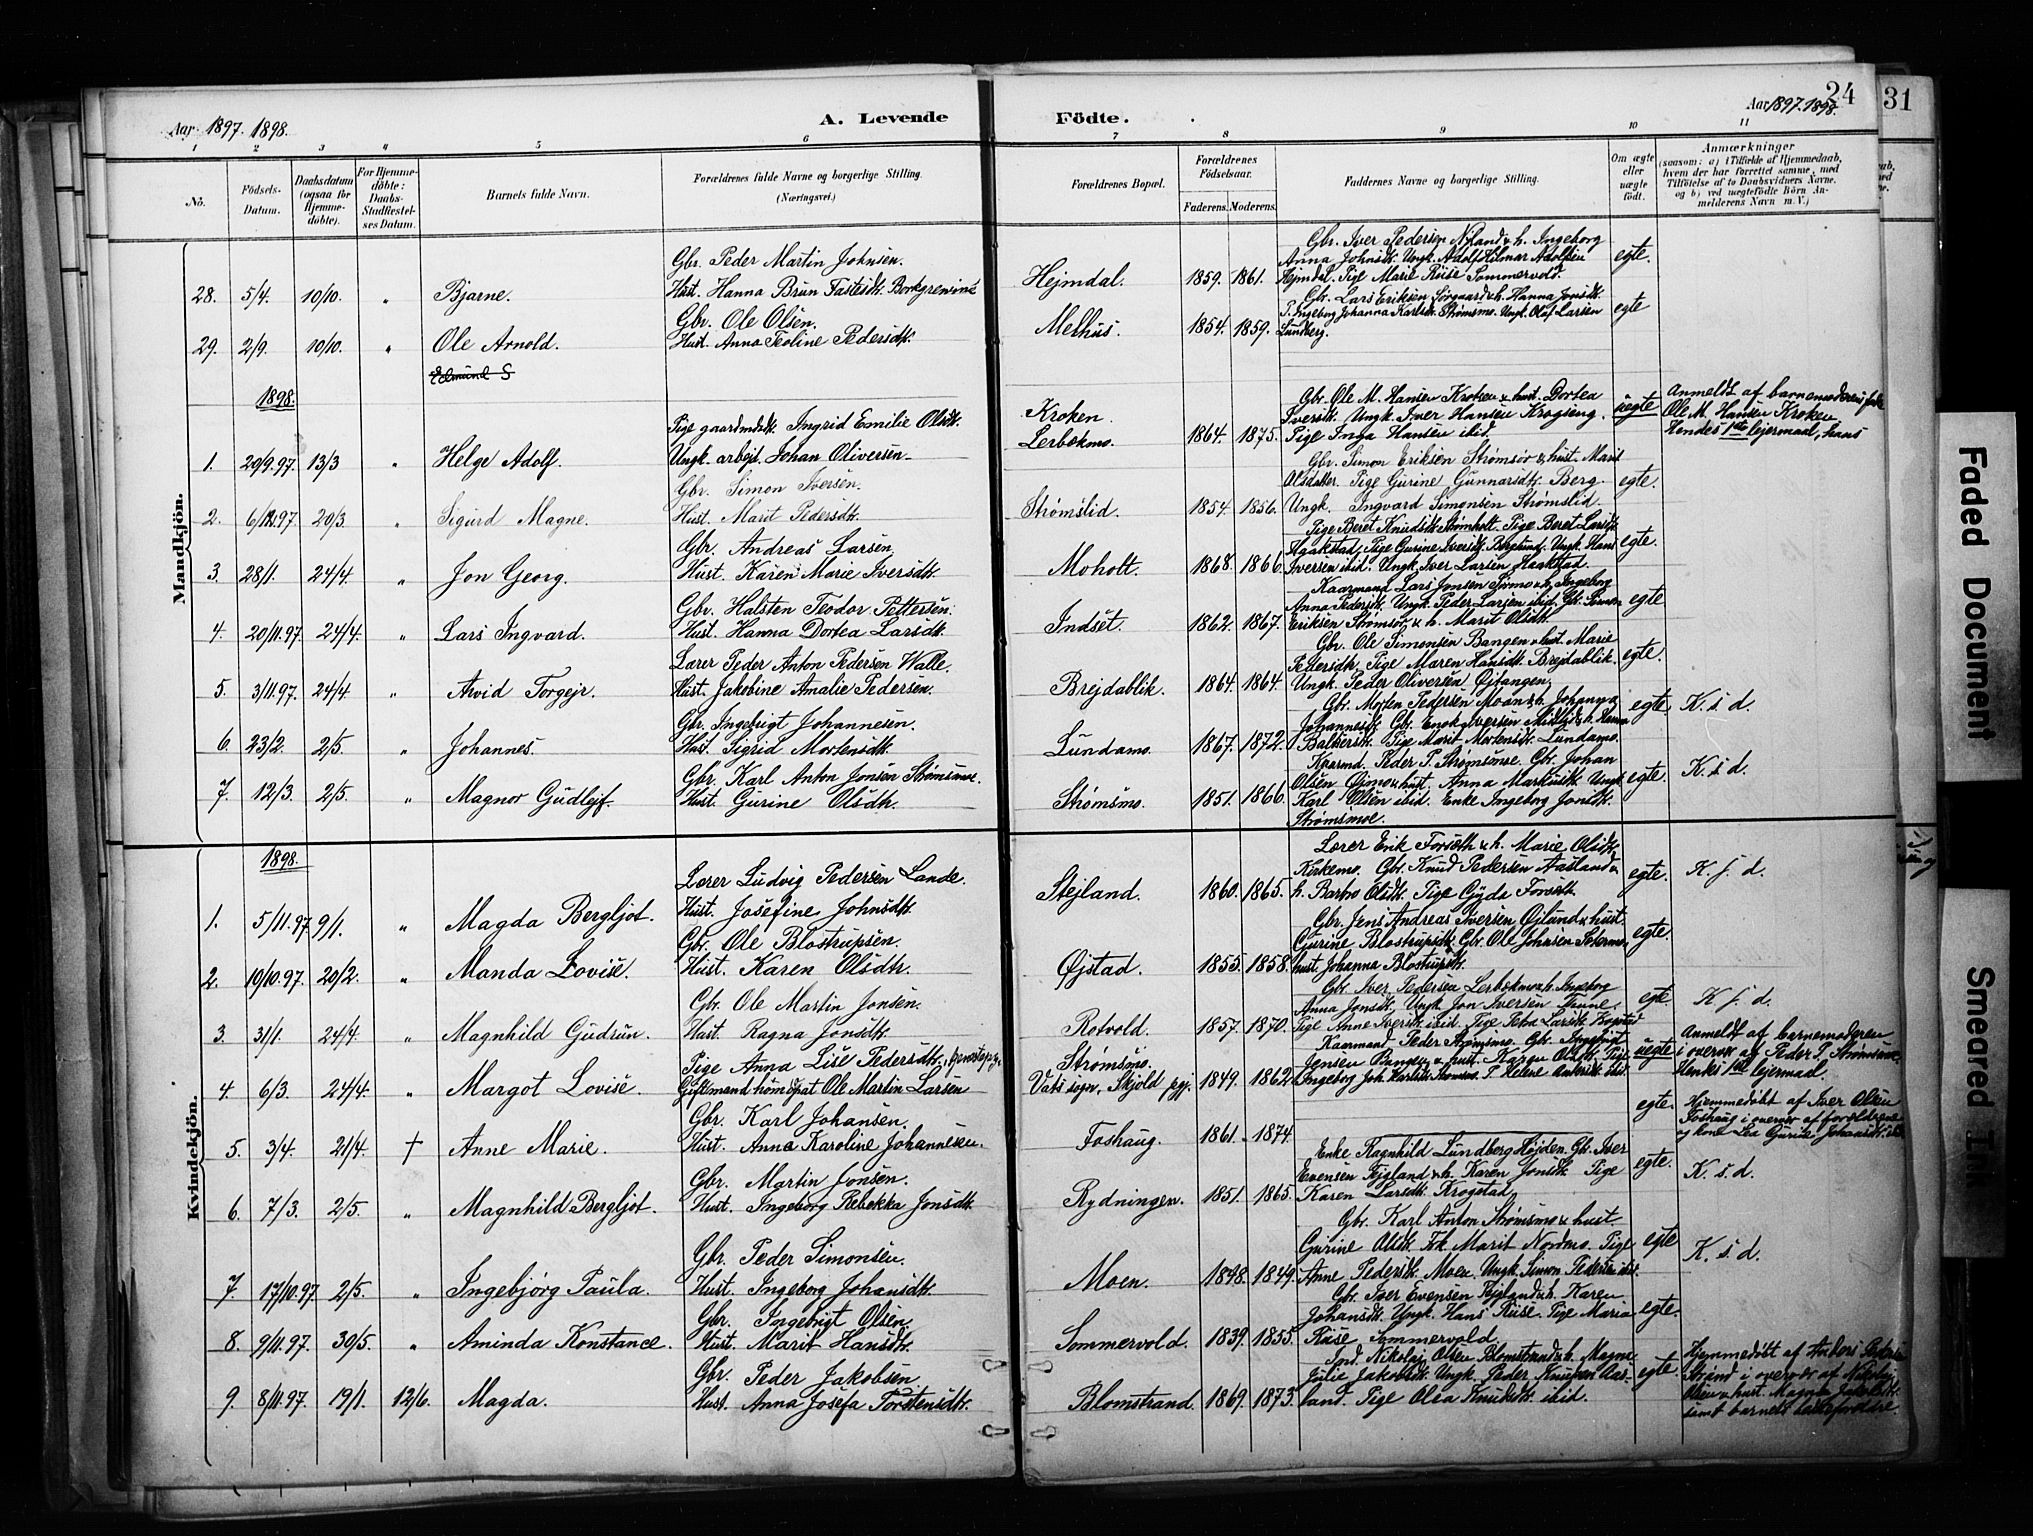 Aar 1897. 1898.
A. Levende
Födte.
Aar 1897. 1898.
24
31
1 2 3 4 5 6 7 8 9 10 11
No.
Födsels-Datum.
Daabsdatum (ogsaa for Hjemmedöbte).
For Hjemmedöbte: Daabs-Stadfestelses Datum.
Barnets fulde Navn.
Forældrenes fulde Navne og borgerlige Stilling.
(Næringsvei.)
Forældrenes Bopæl.
Forældrenes Födselsaar.
Faderens. Moderens.
Faddernes Navne og borgerlige Stilling.
Om ægte eller uægte födt.
Anmærkninger
(saasom: a) i Tilfælde af Hjemmedaab, hvem der har forrettet samme, med Tilföielse af to Daabsvidners Navne, og b) ved uægtefödte Börn Anmelderens Navn m. V.)
Mandkjön.
Gbr. Peder Martin Johnsen.
Gbr. Iver Pedersen Nyland & h. Ingeborg
Anna Johnsdtr. Ungk. Adolf Hilmar Adolfsen
28. 5/4. 10/10. " Bjarne. Hust. Hanna Brun Fastesdtr. Hejmdal. 1859. 1861. Hejmdal. Pige Marie Riise Sommervold. egte.
Gbr. Ole Olsen.
Gbr. Lars Eriksen Sørgaard & h. Hanna Jonsdtr.
P. Ingebog Johanna Karlsdtr. Strømsmo. Ungk. Olaf Larsen
29. 2/9. 10/10. " Ole Arnold. Hust. Anna Teoline Pedersdtr. Melhus. 1854. 1859. Lundberg. egte
Edmund S
1898.
Pige gaardmdsdtr. Ingrid Emilie Olsdtr. Kroken
Gbr. Ole M. Hansen Kroken & hust. Dortea
Iversdtr. Ungk. Iver Hansen Krogseng.
1. 20/9.97. 13/3 " Helge Adolf. Ungk. arbejd. Johan Oliversen. Lerbekmo. 1864. 1875. Pige Inga Hansen ibid. uegte
Anmeldt af barnemoderens fader
Ole M. Hansen Kroken
Hendes 1ste lejermaal, hans
Gbr. Simon Iversen.
Gbr. Simon Eriksen Strømsør & hust. Marit
Olsdatter. Pige Gurine Gunnarsdtr. Berg.
2. 6/12.97. 20/3 " Sigurd Magne. Hust. Marit Pedersdtr. Strømslid. 1854. 1856. Ungk. Ingvard Simonsen Strømslid. egte.
Gbr. Andreas Larsen.
Pige Beret Knudsdtr. Strømholt. Pige Beret Larsdtr.
Haakstad. Pige Gurine Iversdtr. Berglund. Ungk. Hans
3. 28/1. 24/4. " Jon Georg. Hust. Karen Marie Iversdtr. Moholt. 1868. 1866. Iversen ibid. Ungk. Iver Larsen Haakstad. egte.
Gbr. Halsten Teodor Pettersen.
Kaarmand Lars Jonsen Sørmo & h. Ingeborg
Anna Pedersdtr. Ungk. Peder Larsen ibid. Gbr. Simon
4. 20/11.97. 24/4. " Lars Ingvard. Hust. Hanna Dortea Larsdtr. Indset. 1862. 1867. Eriksen Strømsør & h. Marit Olsdtr. egte
Lærer Peder Anton Pedersen Walle.
Gbr. Ole Simonsen Bangen & hust. Marie
Pedersdtr. Pige Maren Hansdtr. Brejdablik.
5. 3/11.97. 24/4 " Arvid Torgejr. Hust. Jakobine Amalie Pedersen. Brejdablik. 1864. 1864. Ungk. Peder Oliversen Øjtangen. egte.
Gbr. Ingebrigt Johannesen.
Gbr. Morten Pedersen Moan & h. Johanna
Johannesdtr. Gbr. Enok Iversen
6. 23/2. 2/5. " Johannes. Hust. Sigrid Mortensdtr. Lundamo. 1867. 1872. Pige Marit Mortensdtr. Lundamo. egte. K. s. d.
Gbr. Karl Anton Jonsen Strømsmoe.
Kaarmd. Peder P. Strømsmoe. Gbr. Johan
Olsen Øjmo & hust. Anna Markusdtr. Ungk.
7. 12/3. 2/5. " Magnor Gudlejf. Hust. Gurine Olsdtr. Strømsmo. 1851. 1866. Karl Olsen ibid. Enke Ingeborg Jonsdtr. egte. K. s. d.
Strømsmoe.
Kvindekjön.
1898.
Lærer Ludvig Pedersen Lande.
Lærer Erik Forseth & h. Marie Olsdtr.
Kirkemo. Gbr. Knud Pedersen Aasland &
1. 5/11.97. 9/1. " Magda Bergljot. Hust. Josefine Johnsdtr. Stejland. 1860. 1865. h. Barbro Olsdtr. Pige Gyda Forseth. egte. K. f. d.
Gbr. Ole Blostrupsen.
Gbr. Jens Andreas Iversen Øjlund & hust.
Gurine Blostrupsdtr. Gbr. Ole Johnsen Sætermo
2. 19/10.97. 20/2. " Manda Lovise. Hust. Karen Olsdtr. Øjstad. 1855. 1858. hust. Johanna Blostrupsdtr. egte.
Gbr. Ole Martin Jonsen.
Gbr. Iver Pedersen Lerbekmo & h. Ingeborg
Anna Jonsdtr. Ungk. Jon Iversen
3. 31/1. 24/4. " Magnhild Gudrun. Hust. Ragna Jonsdtr. Rotvold. 1857. 1870. Pige Anne Iversdtr. ibid. Pige Petra Larsdtr. Krogstad egte. K. f. d.
Pige Anna Lise Pedersdtr. Strømsmo.
Kaarmand Peder Strømsmo. Gbr. Ingebrigt
Jensen & hust. Karen Olsdtr. Pige
4. 6/3. 24/4. " Margot Lovise. Giftmand homöopat Ole Martin Larsen Vats sogn, Skjold pgj. 1849. 1862. Ingeborg Joh. Karlsdtr. Strømsmo. P. Helene ibid. uegte
Anmeldt af barnemoderen
i overvær af Peder P. Strømsmoe
Hendes 1ste lejermaal.
Gbr. Karl Johansen.
5. 3/4. 21/4. † Anne Marie. Hust. Anna Karoline Johannesen. Foshaug. 1861. 1874. egte.
Hjemmedøbt af Iver Olsen
Foshaug i overvær af forældrene
og kone Lea Gurine Johansdtr.
Gbr. Martin Jonsen.
Enke Ragnhild Lundberg Højden. Gbr. Iver
Evensen Fejgland & h. Karen Jonsdtr. Pige
6. 7/3. 2/5. " Magnhild Bergljot. Hust. Ingeborg Rebekka Jonsdtr. Rydningen. 1851. 1865. Karen Larsdtr. Krogstad. egte. K. s. d.
Gbr. Peder Simonsen.
Gbr. Karl Anton Strømsmo & hust.
Gurine Olsdtr. Frk. Marit Nordmo. Pige
7. 17/10.97. 2/5. " Ingebjörg Paula. Hust. Ingeborg Johansdtr. Moen. 1848. 1849. Anne Pedersdtr. Moen. Ungk. Simon Pedersen ibid. egte K. s. d.
Gbr. Ingebrigt Olsen.
Gbr. Iver Evensen Fejgland & h. Karen
Johansdtr. Ungk. Hans Riise. Pige Maria
8. 9/11.97. 30/5. " Aminda Konstance. Hust. Marit Hansdtr. Sommervold. 1839. 1855. Riise Sommervold. egte.
Gbr. Peder Jakobsen.
Ind. Nikolaj Olsen Blomstrand & h. Magna
Julie Jakobsdtr. Ungk. Peder Knudsen Aas-
9. 8/11.97. 19/1. 12/6. Magda. Hust. Anna Josefa Torstensdtr. Blomstrand. 1869. 1873. land. Pige Olea Knudsdtr. ibid. egte.
Hjemmedøbt af Anders Pedersen
Strand i overvær af Nikolaj
Olsen & hust. Magna Jakobsdtr.
samt barnets forældre.
Faded Document
Smeared Ink